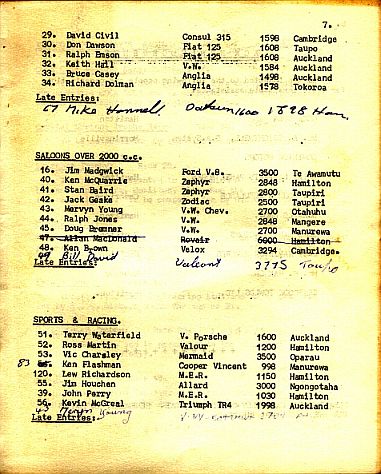 7.
29. David Civil Consul 315 1598 Cambridge
30. Don Dawson Fiat 125 1608 Taupo
31. Ralph Emson Fiat 125 1608 Auckland
32. Keith Hall V.W. 1584 Auckland
33. Bruce Casey Anglia 1498 Auckland
34. Richard Dolman Anglia 1578 Tokoroa
Late Entries:
57 Mike Hannel Datsun 1600 1598 Ham
SALOONS OVER 2000 c.c.
16. Jim Madgwick Ford V.8. 3500 Te Awamutu
40. Ken McQuarrie Zephyr 2848 Hamilton
41. Stan Baird Zephyr 2800 Taupiri
42. Jack Geake Zodiac 2500 Taupiri
43. Mervyn Young V.W. Chev. 2700 Otahuhu
44. Ralph Jones V.W. 2848 Mangere
45. Doug Bremner V.W. 2700 Manurewa
47. Allan MacDonald Rovair 6000 Hamilton
48. Ken Brown Velox 3294 Cambridge.
49 Bill David Valiant 3775 Taupo
Late Entries:
SPORTS & RACING.
51. Terry Waterfield V. Porsche 1600 Auckland
52. Ross Martin Valour 1200 Hamilton
53. Vic Charsley Mermaid 3500 Oparau
83 Ken Flashman Cooper Vincent 998 Manurewa
120. Lew Richardson M.E.R. 1150 Hamilton
55. Jim Houchan Allard 3000 Ngongotaha
39. John Perry M.E.R. 1030 Hamilton
56. Kevin McGreal Triumph TR4 1998 Auckland
43 Mervyn Young
Late Entries: